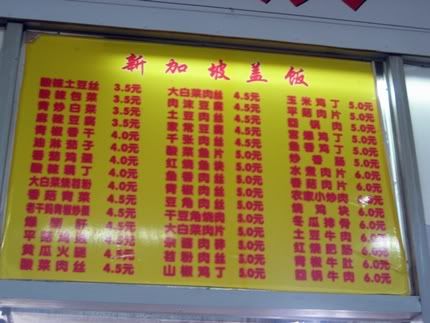 新加坡盖饭
酸辣土豆丝 3.5元
酸辣包菜 3.5元
青炒白菜 3.5元
麻辣豆腐 3.5元
青椒香干 4.0元
油淋茄子 4.0元
番茄鸡蛋 4.0元
4.0元
大白菜烧苕粉 4.0元
香菇青菜 4.0元
老干妈青椒炒蛋 4.5元
4.5元
平菇鸡蛋 4.5元
黄瓜火腿 4.5元
酸菜肉丝 4.5元
大白菜肉丝 4.5元
肉沫豆腐 4.5元
土豆肉丝 4.5元
家常豆腐 4.5元
千张肉丝 4.5元
鱼香肉丝 5.0元
5.0元
鱼香肉片 5.0元
青椒肉丝 5.0元
豆角肉丝 5.0元
干豆角烧肉 5.0元
大白菜肉片 5.0元
5.0元
蒜苔肉丝 5.0元
山椒鸡丁 5.0元
玉米鸡丁 5.0元
平菇肉片 5.0元
回锅肉 5.0元
宫爆鸡丁 5.0元
鱼香鸡丁 5.0元
炒香肠 5.0元
水煮肉片 6.0元
香菇肉片 6.0元
农家小炒肉 6.0元
烧鸡块 6.0元
冬瓜排骨 6.0元
土豆牛肉 6.0元
红烧肥肠 6.0元
青椒牛肚 6.0元
回锅牛肉 6.0元